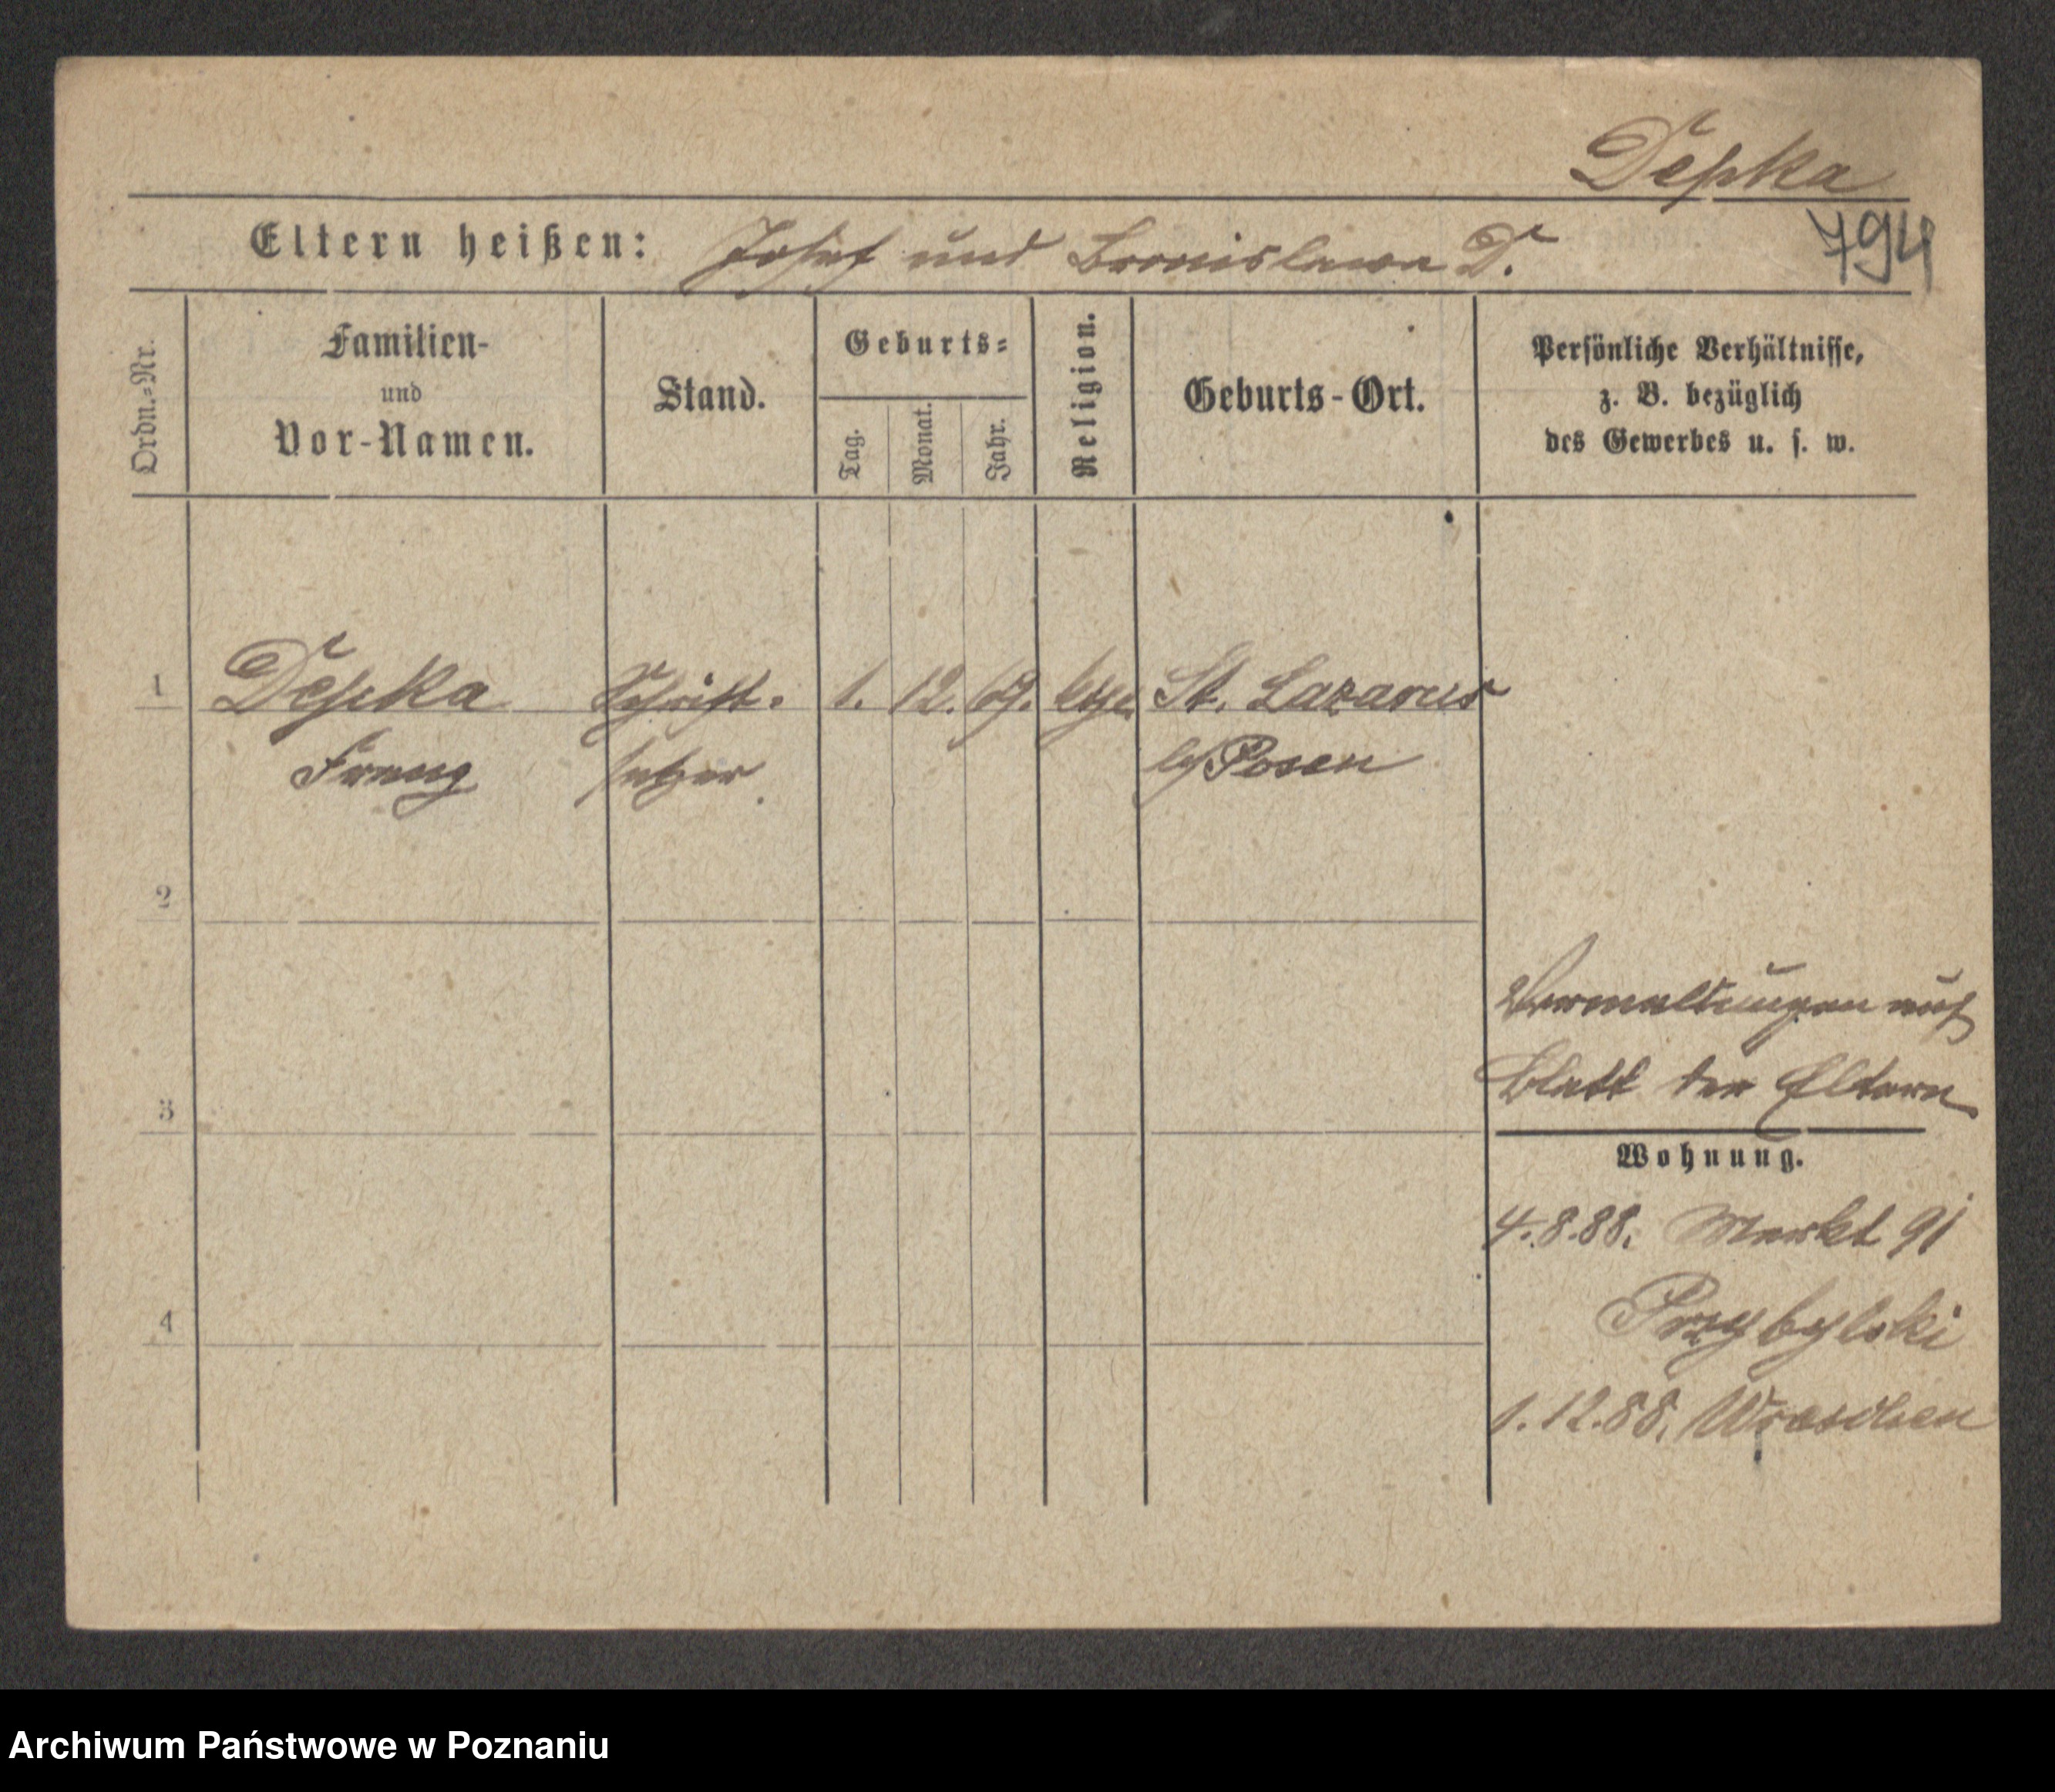 Depka
Eltern heißen: Josef und Bronislawa D.
794
Ordn.-Nr.
Familien-
und
Vor-Namen.
Stand.
Geburts-
Tag.
Monat.
Jahr.
Religion.
Geburts-Ort.
Persönliche Verhältnisse,
z. B. bezüglich
des Gewerbes u. s. w.
1 Depka Schrift- 1. 12. 69. St. Lazarus
Franz setzer b/Posen
2
Anmeldungen auf
3 Blatt der Eltern
Wohnung.
4.8.88. Markt 91
4 Przybylski
1.12.88. Wreschen
Archiwum Państwowe w Poznaniu